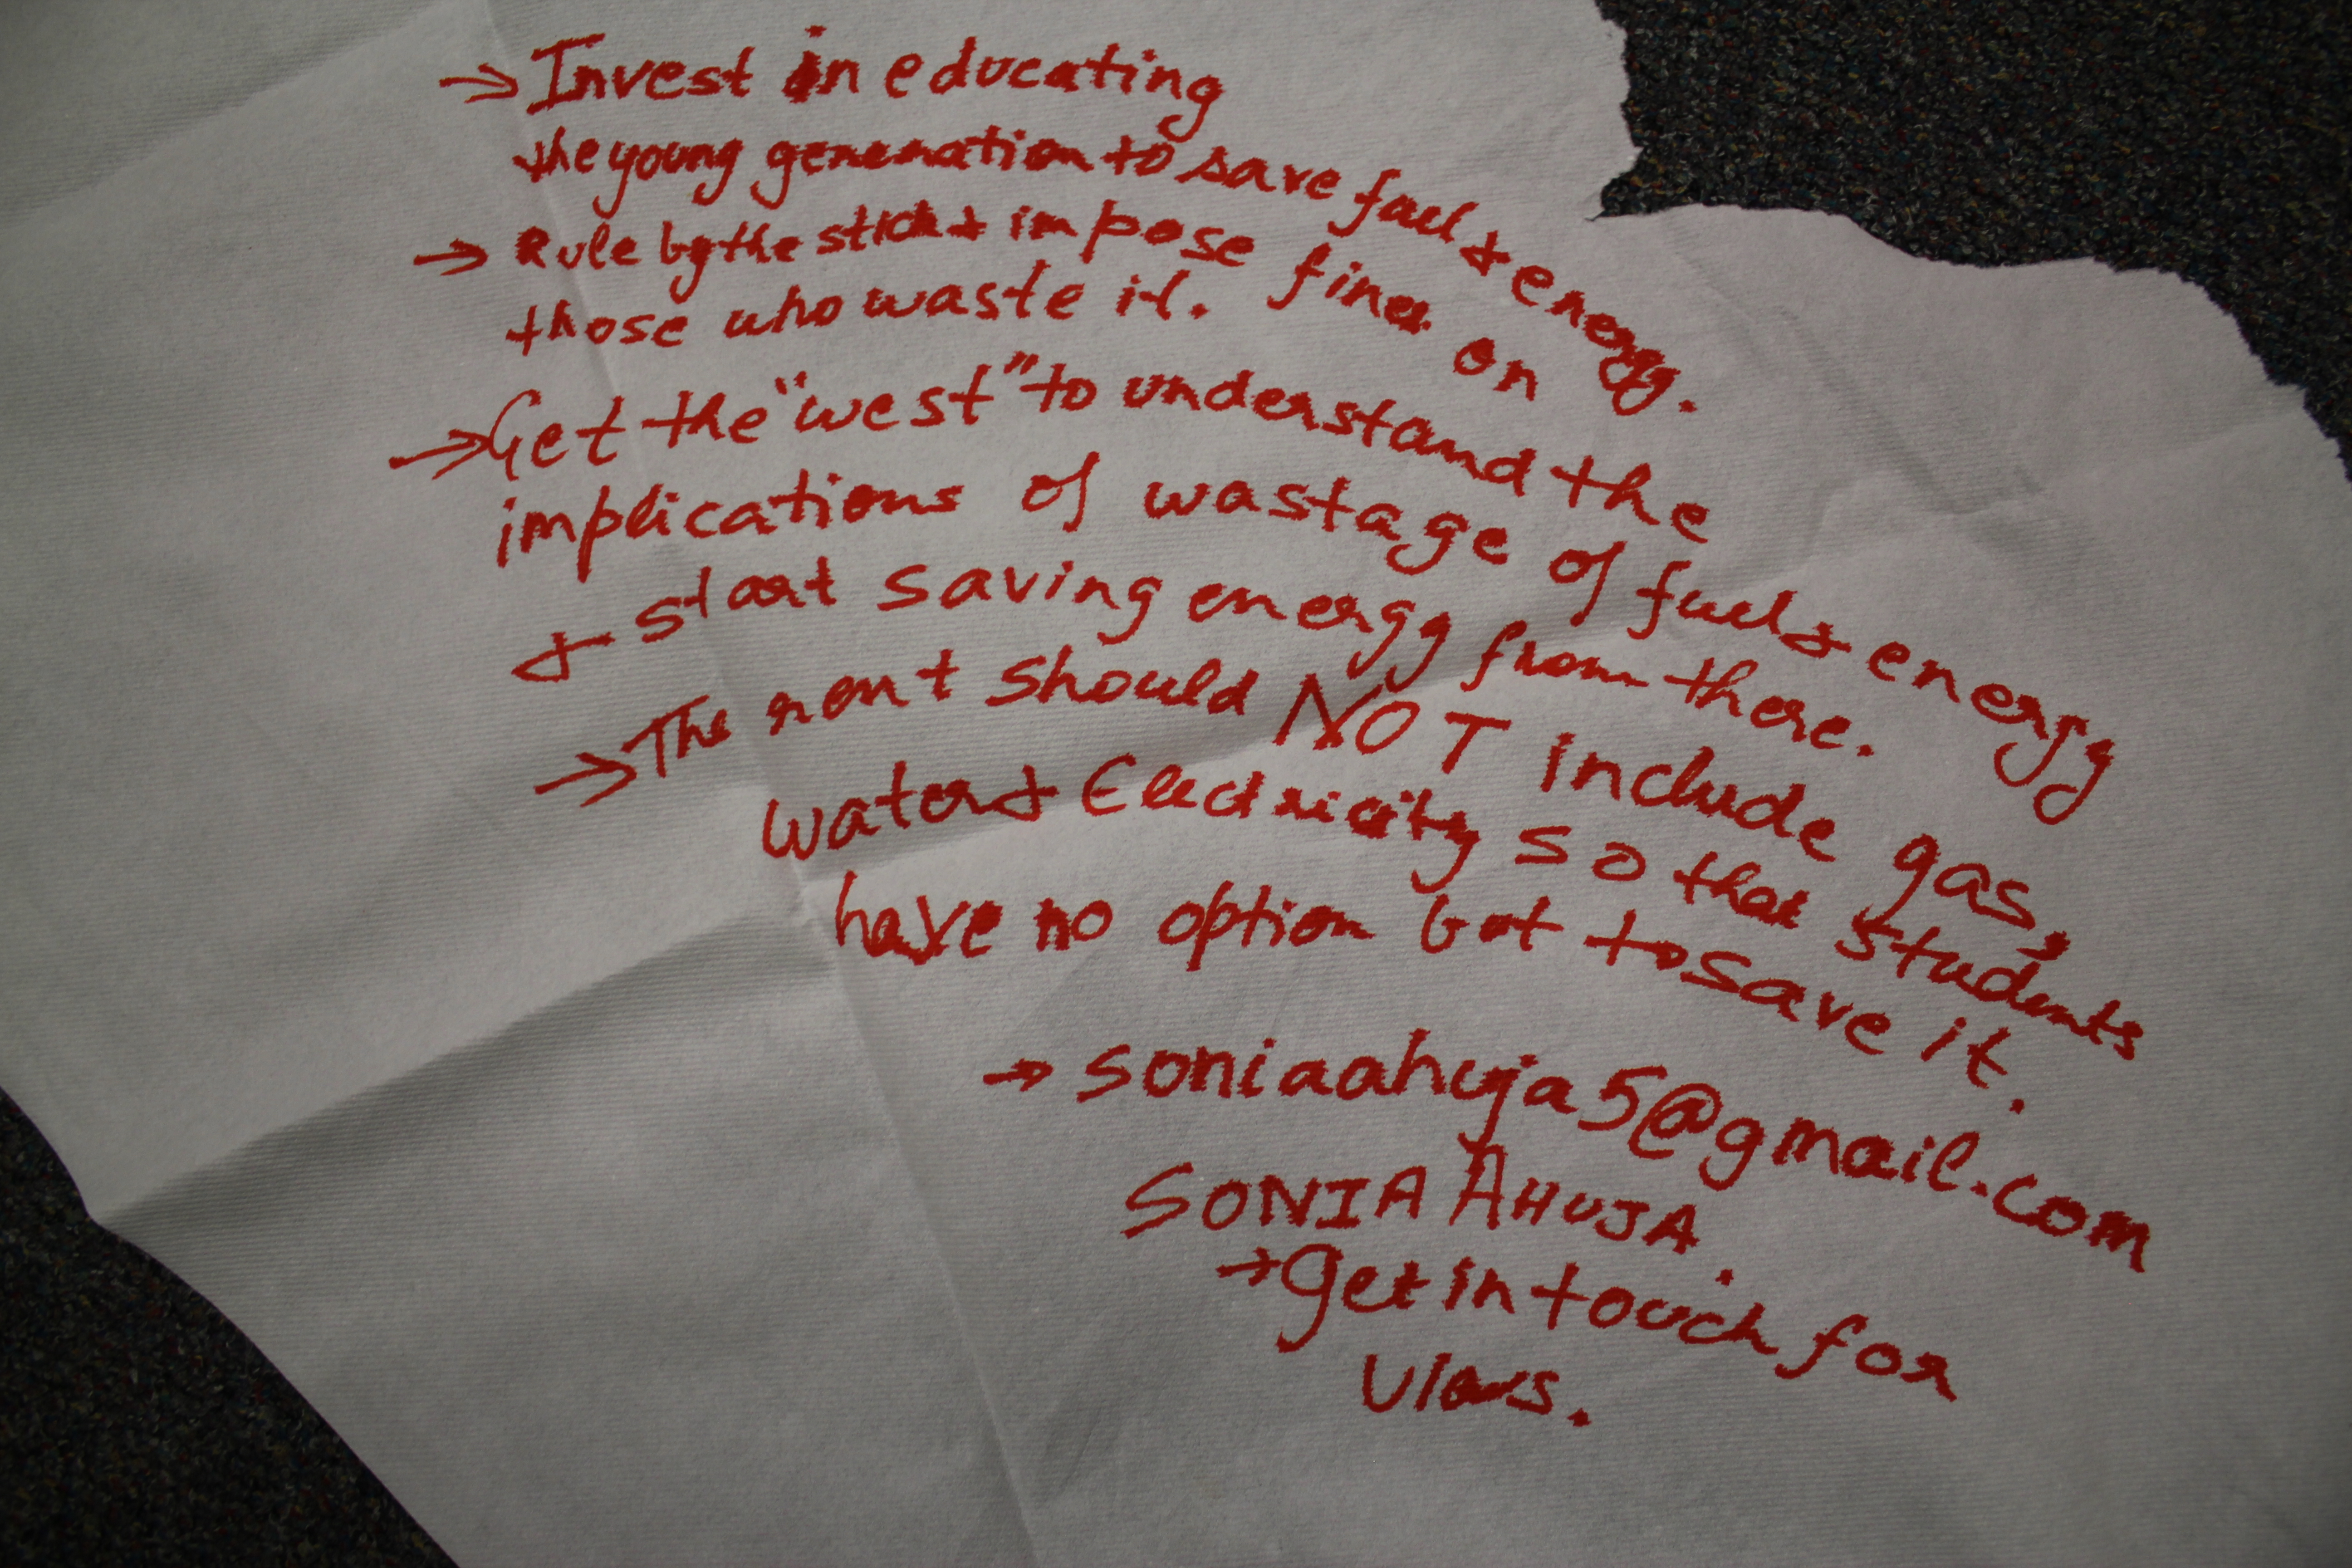 → Invest in educating
the young generation to save fuel & energy.
→ Rule by the stick & impose fines on
those who waste it.
→ Get the "west" to understand the
implications of wastage of fuel & energy
& start saving energy from there.
→ The rent should NOT include gas,
water & Electricity so that students
have no option but to save it.
→ soniaahuja5@gmail.com
SONIA AHUJA.
→ Get in touch for